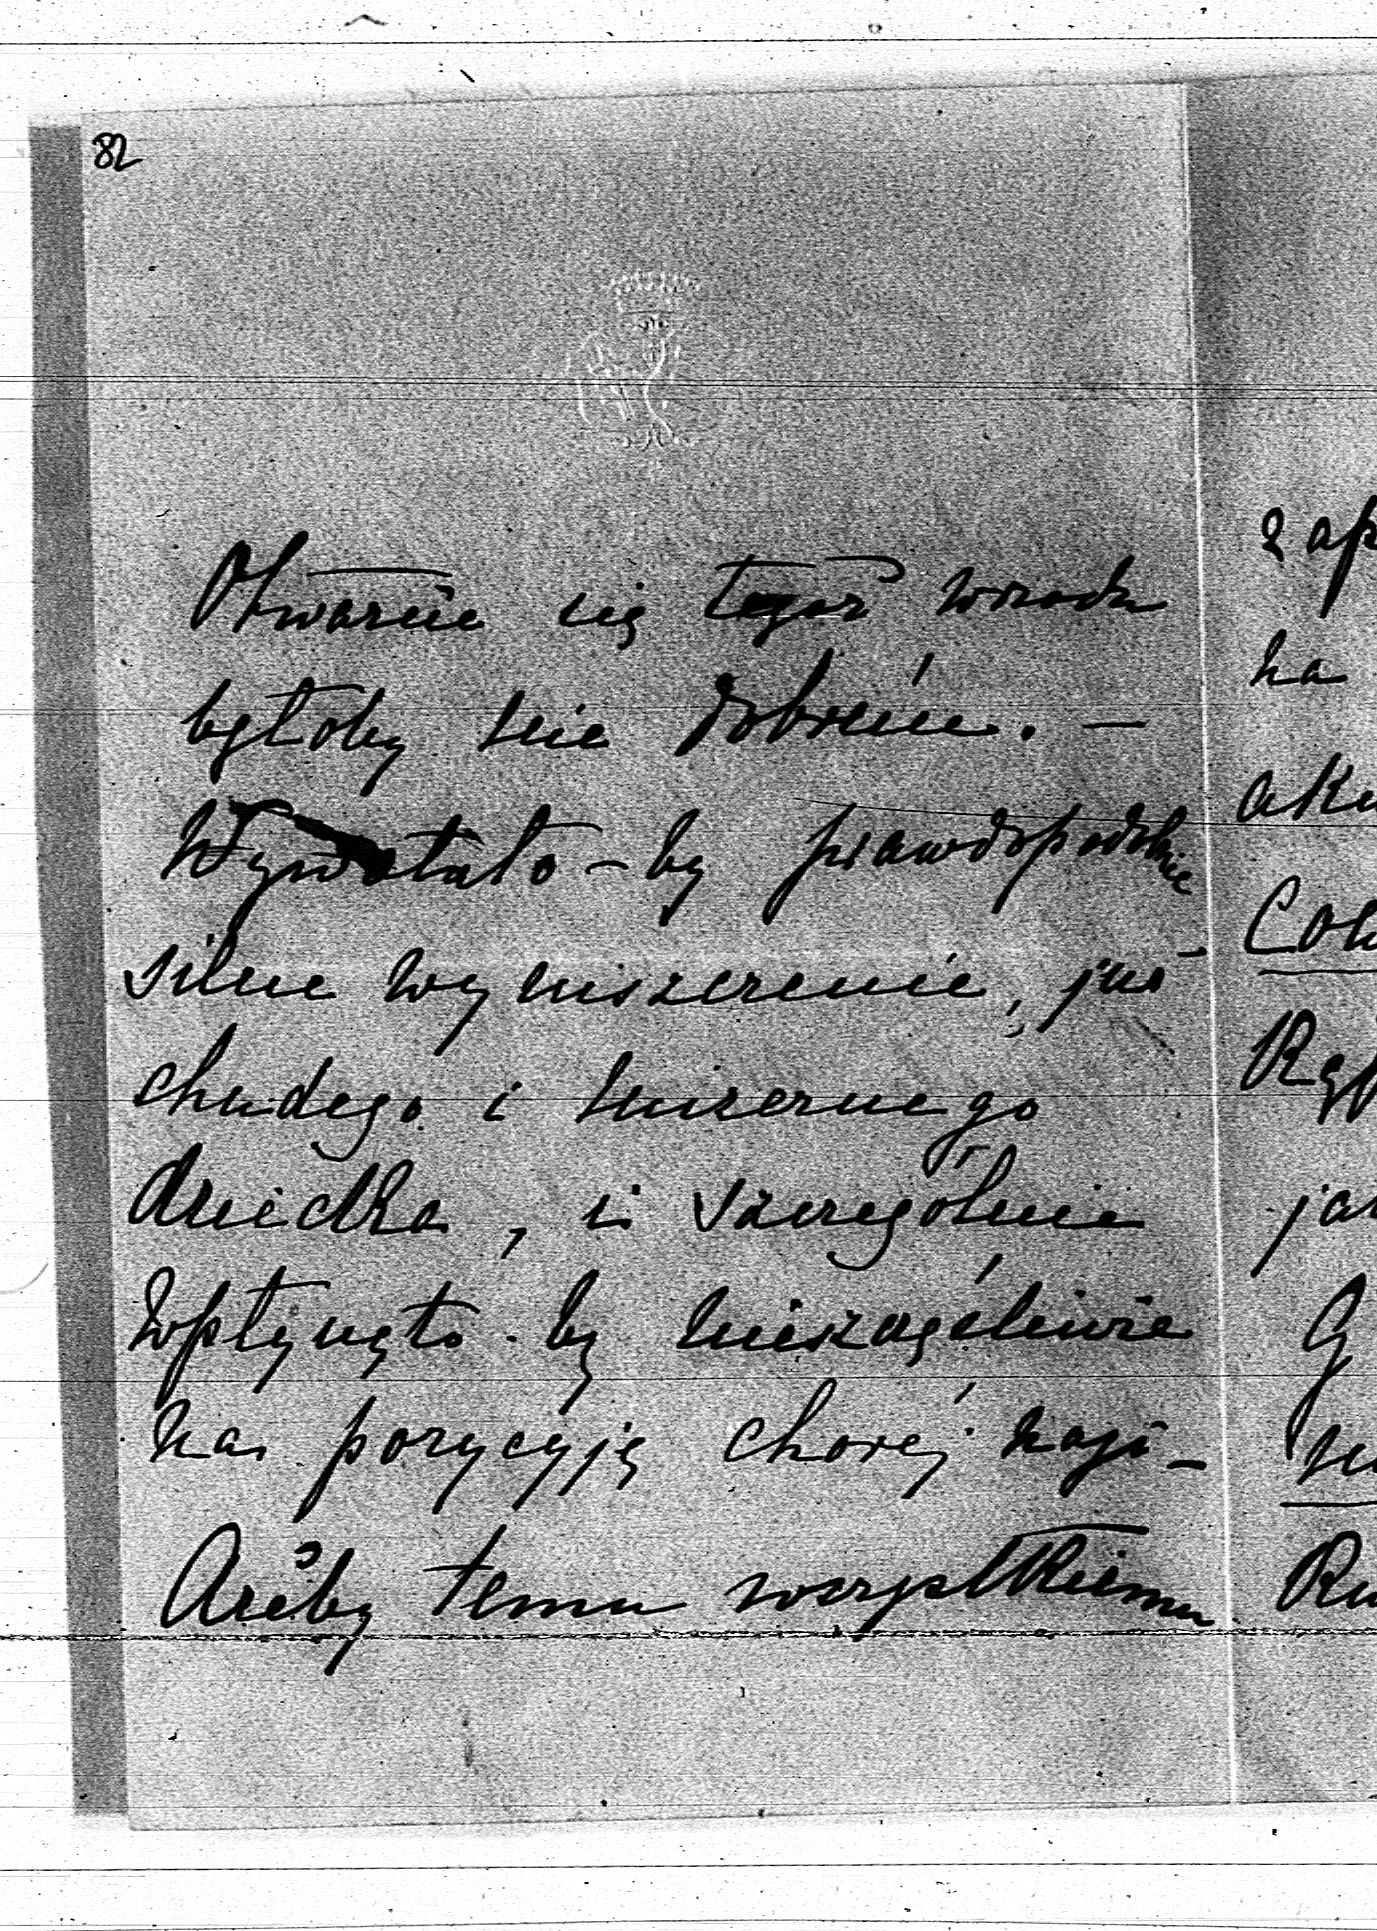 82
Otwarcie się tegoż wrzodu
byłoby nie dobrém. —
Wywołało-by prawdopodobnie
silne wyniszczenie, już
chudego i mizernego
dziecka, i szczególnie
wpłynęło-by nieszczęśliwie
na pozycyję chorej nogi –
Ażeby temu wszystkiemu
zap
na
aku
Col
Ręf
jak
G
Ru